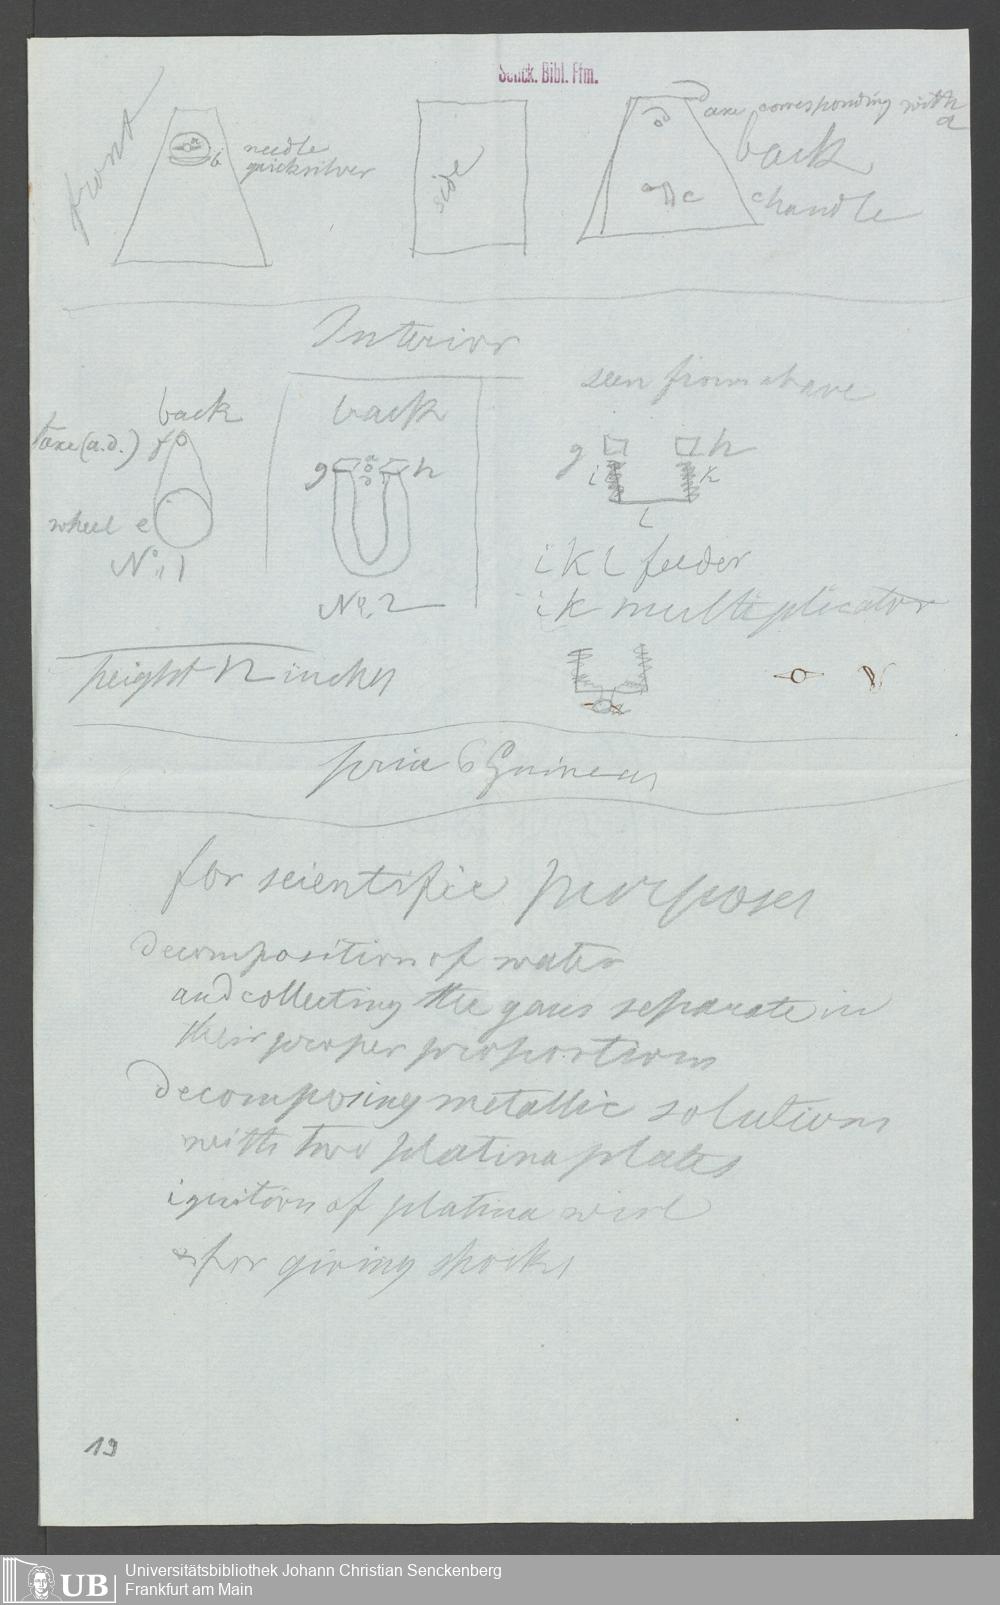 Senck. Bibl. Ffm.
front
a
b
needle
quicksilver
side
d
c
axe corresponding with
a
back
c handle
Interior
back
axe (a.d.) f
wheel e
No. 1
back
g h
a
d
No. 2
seen from above
g h
i k
l
i k l feeder
i k multiplicator
height 12 inches
a
price 6 Guineas
for scientific purposes
decomposition of water
and collecting the gases separate in
their proper proportions
decomposing metallic solutions
with two platina plates
ignition of platina wire
& for giving shocks
19
UB
Universitätsbibliothek Johann Christian Senckenberg
Frankfurt am Main